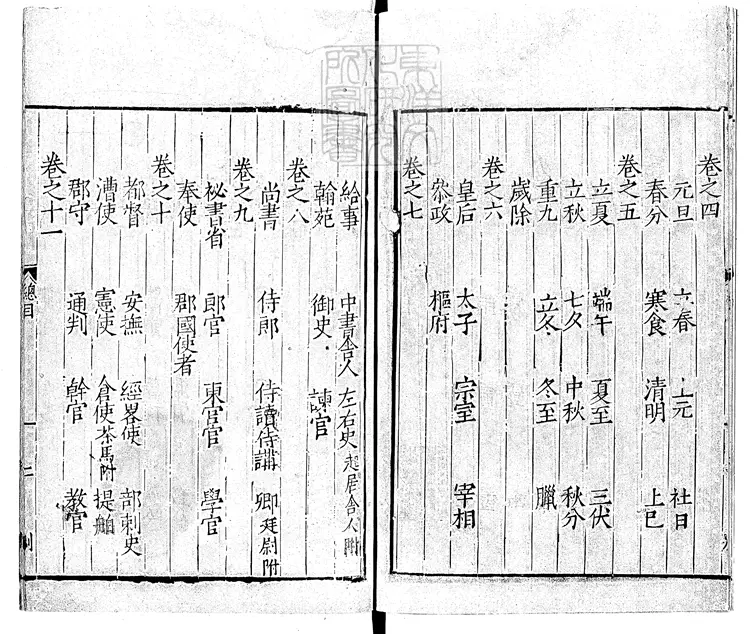 卷之四
元旦 立春 上元 社日
春分 寒食 清明 上巳
卷之五
立夏 端午 夏至 三伏
立秋 七夕 中秋 秋分
重九 立冬 冬至 臘
歲除
卷之六
皇后 太子 宗室 宰相
叅政 樞府
卷之七
給事 中書舍人 左右史 起居舍人附
翰苑 御史 諫官
卷之八
尚書 侍郎 侍讀侍講 卿 廷尉附
卷之九
祕書省 郎官 東宮官 學官
奉使 郡國使者
卷之十
都督 安撫 經畧使 部刺史
漕使 憲使 倉使 茶馬附 提舶
郡守 通判 幹官 教官
卷之十一
總目